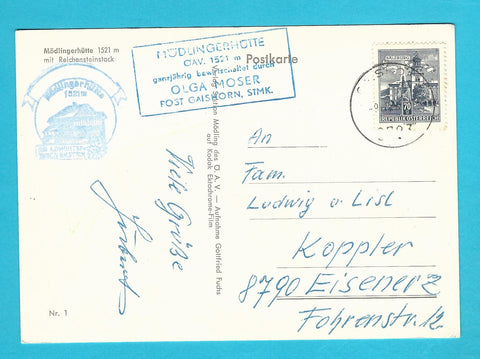 Mödlingerhütte 1521 m
mit Reichensteinstock
MÖDLINGERHÜTTE
ÖAV. 1521 m
ganzjährig bewirtschaftet durch
OLGA MOSER
POST GAISHORN, STMK.
Postkarte
Mödlingerhütte
1521m
REPUBLIK ÖSTERREICH
Viele Grüße
Verlag Station Mödling des O. A. V. — Aufnahme Gottfried Fuchs
auf Kodak Ektachrome-Film
An
Fam.
Ludwig u. Lisl
Koppler
8790 Eisenerz
Fohrenstr. 12
Nr. 1